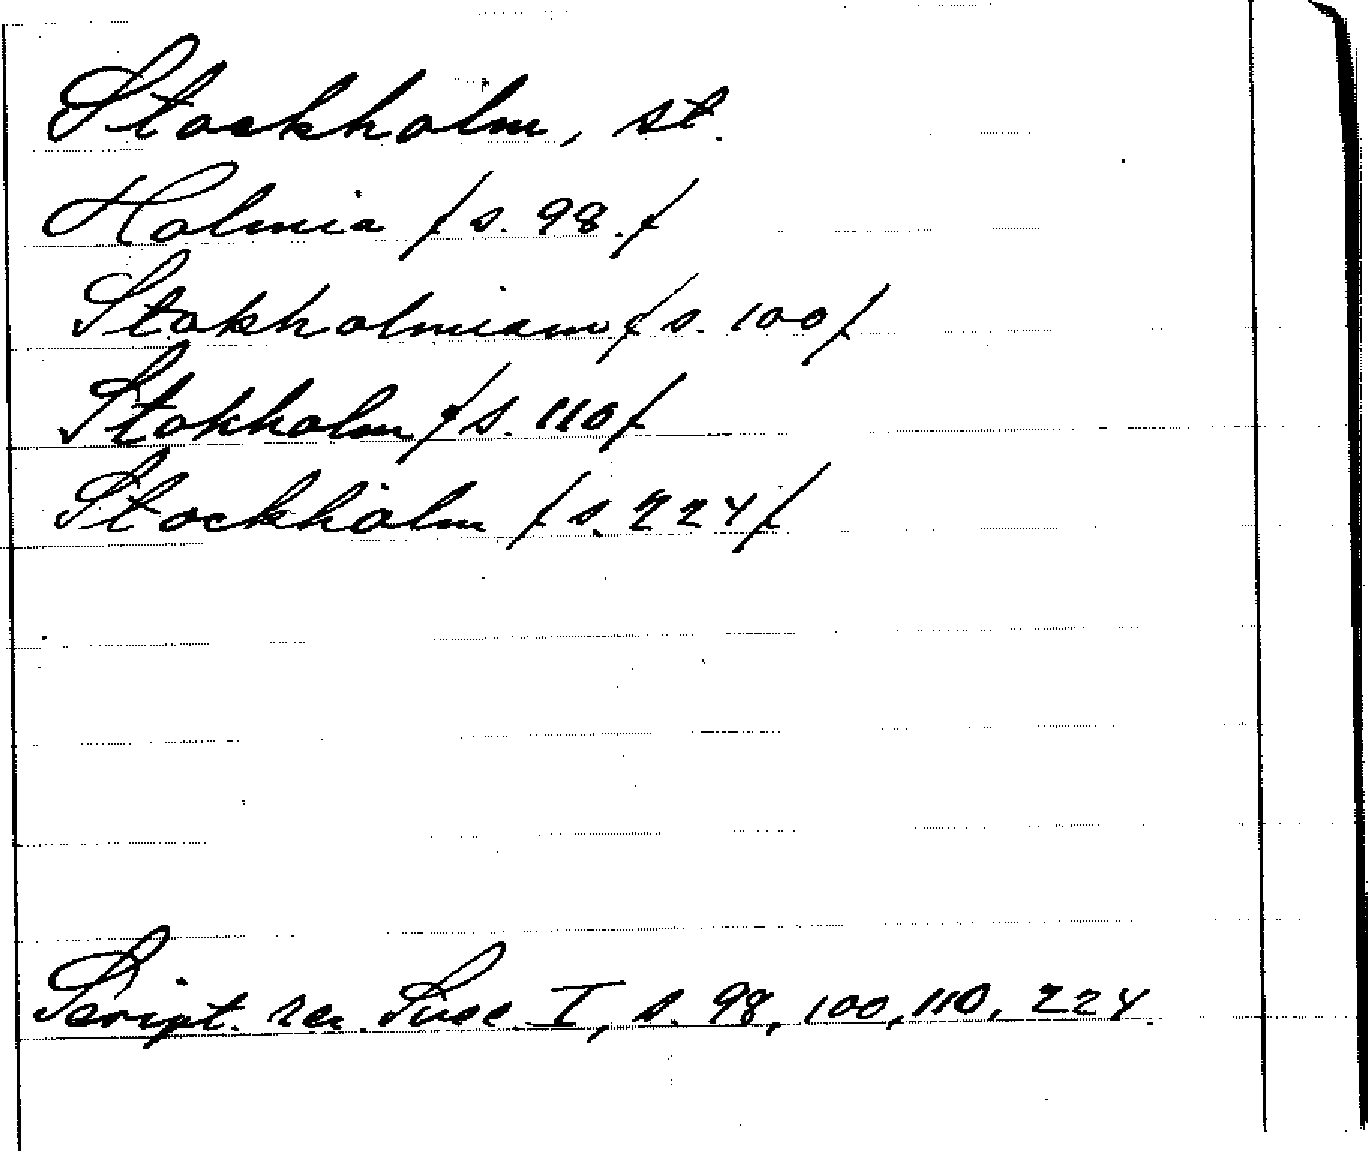 Stockholm, st.
Holmia /s. 98./
Stokholmiam /s. 100/
Stokholm /s. 110/
Stockholm /s. 224/
Script. rer. Suec. I, s. 98, 100, 110, 224.